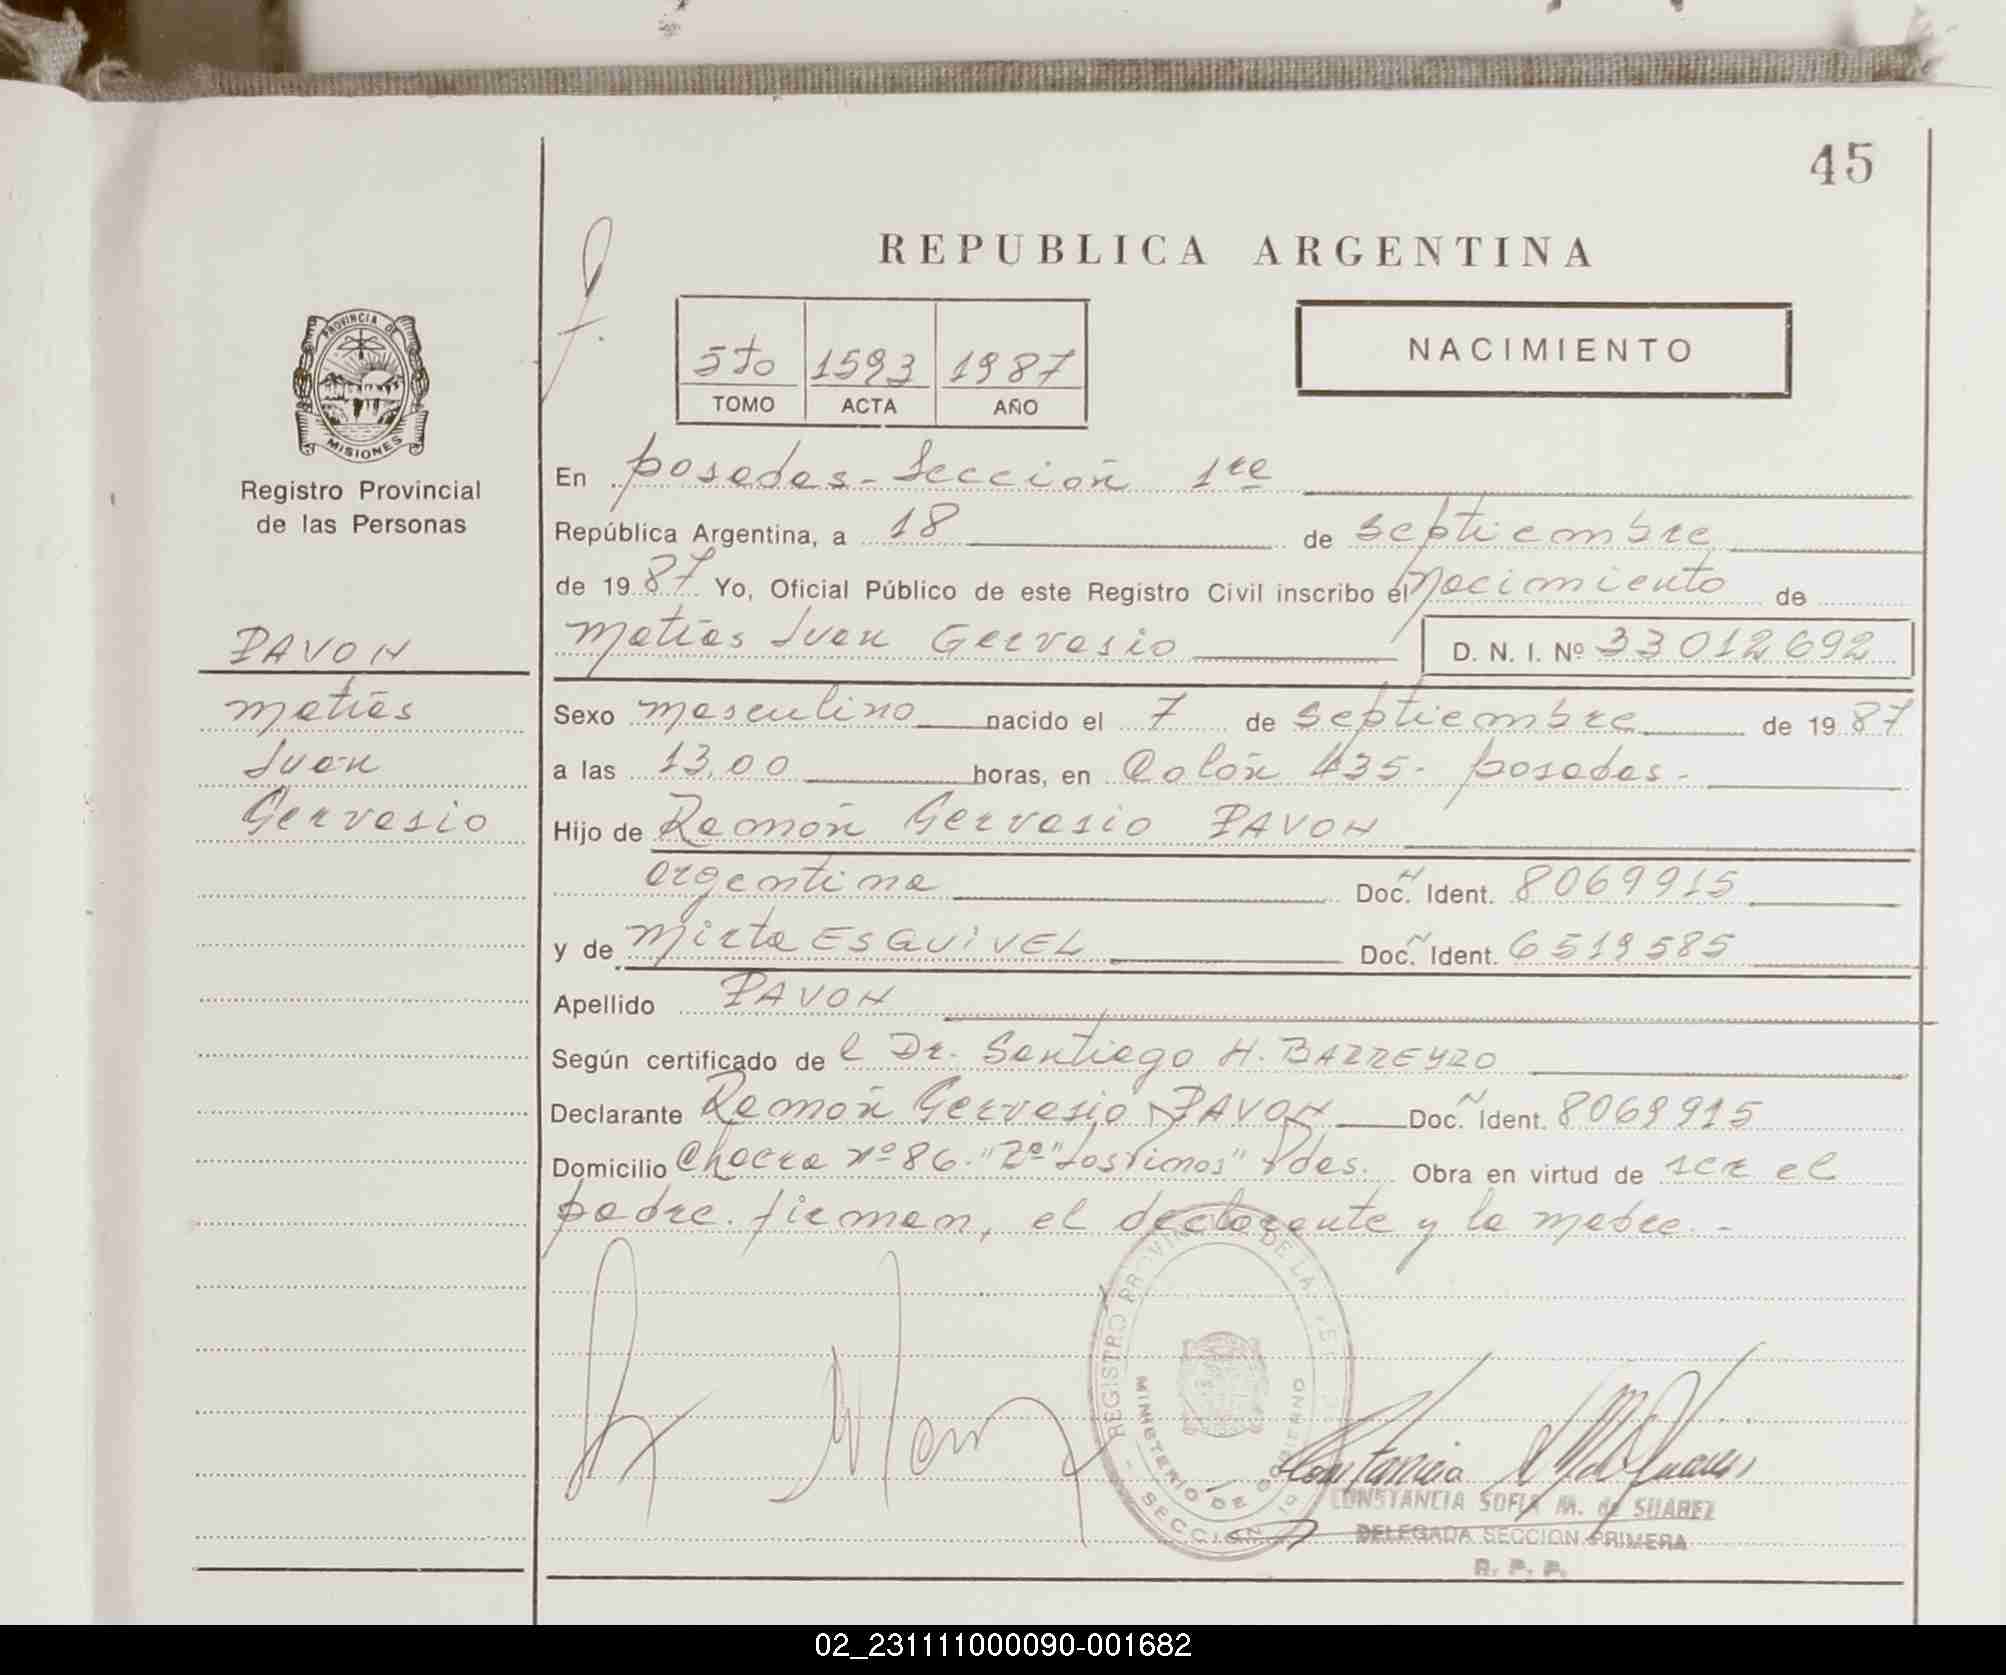 45
REPUBLICA ARGENTINA
PROVINCIA DE
MISIONES
Registro Provincial
de las Personas
5to 1593 1987
TOMO ACTA AÑO
NACIMIENTO
En Posadas - Sección 1ra
República Argentina, a 18 de septiembre
de 1987 Yo, Oficial Público de este Registro Civil inscribo el Nacimiento de
Matías Juan Gervasio D. N. I. Nº 33012692
PAVON
Matías
Juan
Gervasio
Sexo masculino nacido el 7 de septiembre de 1987
a las 13,00 horas, en Colón 435 - Posadas -
Hijo de Ramón Gervasio PAVON
argentina Doc. Ident. 8069915
y de Mirta ESQUIVEL Doc. Ident. 6519585
Apellido PAVON
Según certificado de l Dr. Santiago H. BARREYRO
Declarante Ramón Gervasio PAVON Doc. Ident. 8069915
Domicilio Chacra nº 86 - "Bº" Los Pinos" Pdas. Obra en virtud de ser el
padre. firman, el declarante y la madre. -
REGISTRO PROVINCIAL DE LAS PERSONAS
MINISTERIO DE GOBIERNO
SECCION 1a
CONSTANCIA SOFIA M. de SUAREZ
DELEGADA SECCION PRIMERA
R. P. P.
02_231111000090-001682